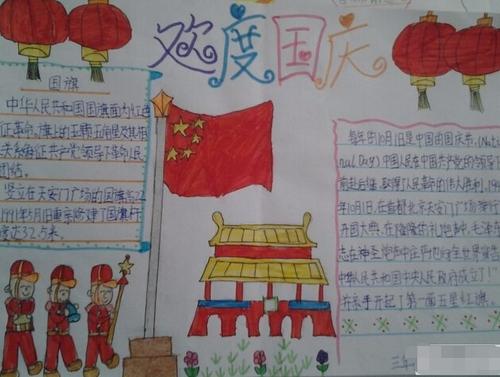 欢度国庆
国旗
中华人民共和国国旗面为红色
征革命,旗上的五颗五角星及其相
关系象征共产党领导下革命人民
团结。
竖立在天安门广场的国旗
1991年5月1日重
高达32.5米。
每年的10月1日是中国的国庆节。(Nati
nal Day)中国人民在中国共产党的领导
前赴后继,取得了人民革命的伟大胜利,
年10月1日,在首都北京天安门广场举行
开国大典,在隆隆的礼炮声中,毛泽东
志在
中华人民共和国中央人民政府成立了!
并亲手升起了第一面五星红旗。
三年